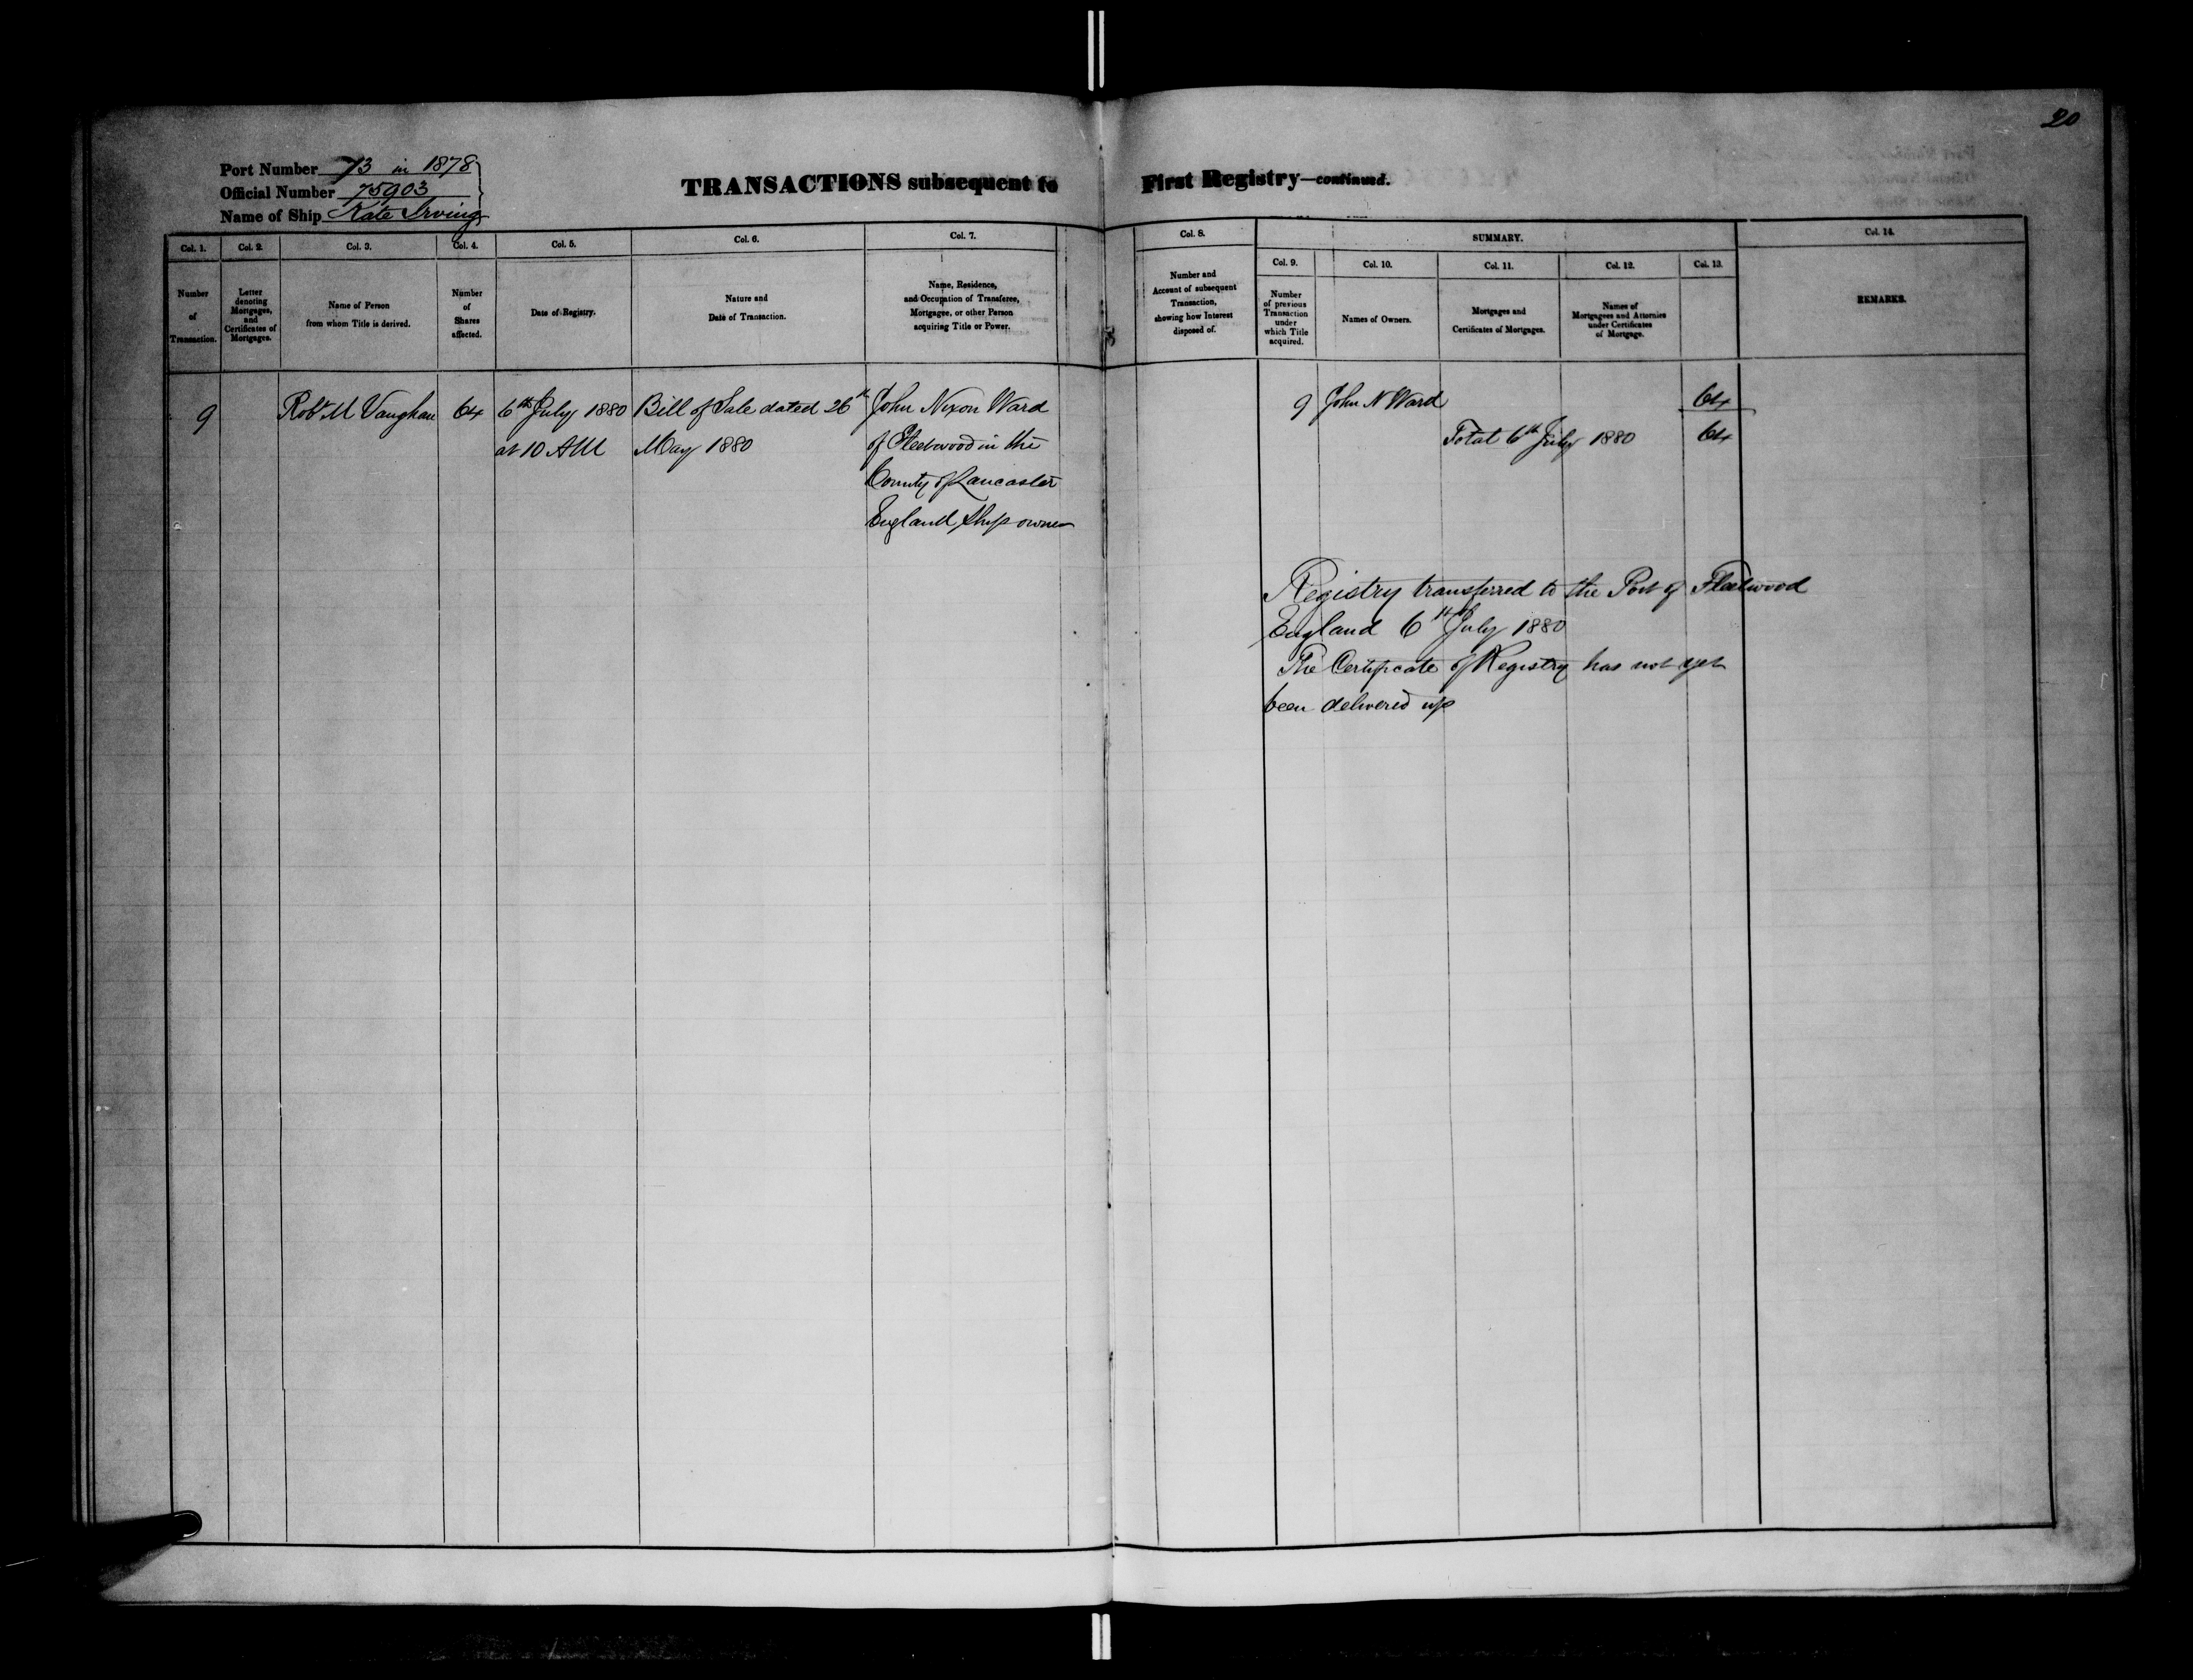 20
Port Number 73 in 1878
Official Number 75903
Name of Ship Kate Irving
TRANSACTIONS subsequent to First Registry—continued.
Col. 1.
Number
of
Transaction.
Col. 2.
Letter
denoting
Mortgages,
and
Certificates of
Mortgages.
Col. 3.
Name of Person
from whom Title is derived.
Col. 4.
Number
of
Shares
affected.
Col. 5.
Date of Registry.
Col. 6.
Nature and
Date of Transaction.
Col. 7.
Name, Residence,
and Occupation of Transferee,
Mortgagee, or other Person
acquiring Title or Power.
Col. 8.
Number and
Account of subsequent
Transaction,
showing how Interest
disposed of.
SUMMARY.
Col. 9.
Number
of previous
Transaction
under
which Title
acquired.
Col. 10.
Names of Owners.
Col. 11.
Mortgages and
Certificates of Mortgages.
Col. 12.
Names of
Mortgagees and Attornies
under Certificates
of Mortgage.
Col. 13.
Col. 14.
REMARKS.
9
Robt M Vaughan
64
6th July 1880
at 10 AM
Bill of Sale dated 26th
May 1880
John Nixon Ward
of Fleetwood in the
County of Lancaster
England, Ship owner
9 John N Ward 64
Total 6th July 1880 64
Registry transferred to the Port of Fleetwood
England 6th July 1880
The Certificate of Registry has not yet
been delivered up